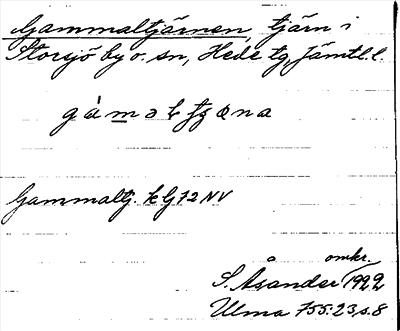 Gammaltjärnen, tjärn i
Storsjö by o. sn, Hede tg, Jämtl. l.
Gammaltj. k G 12 NV
omkr.
S. Åsander 1922
Ulma 755:23, s. 8